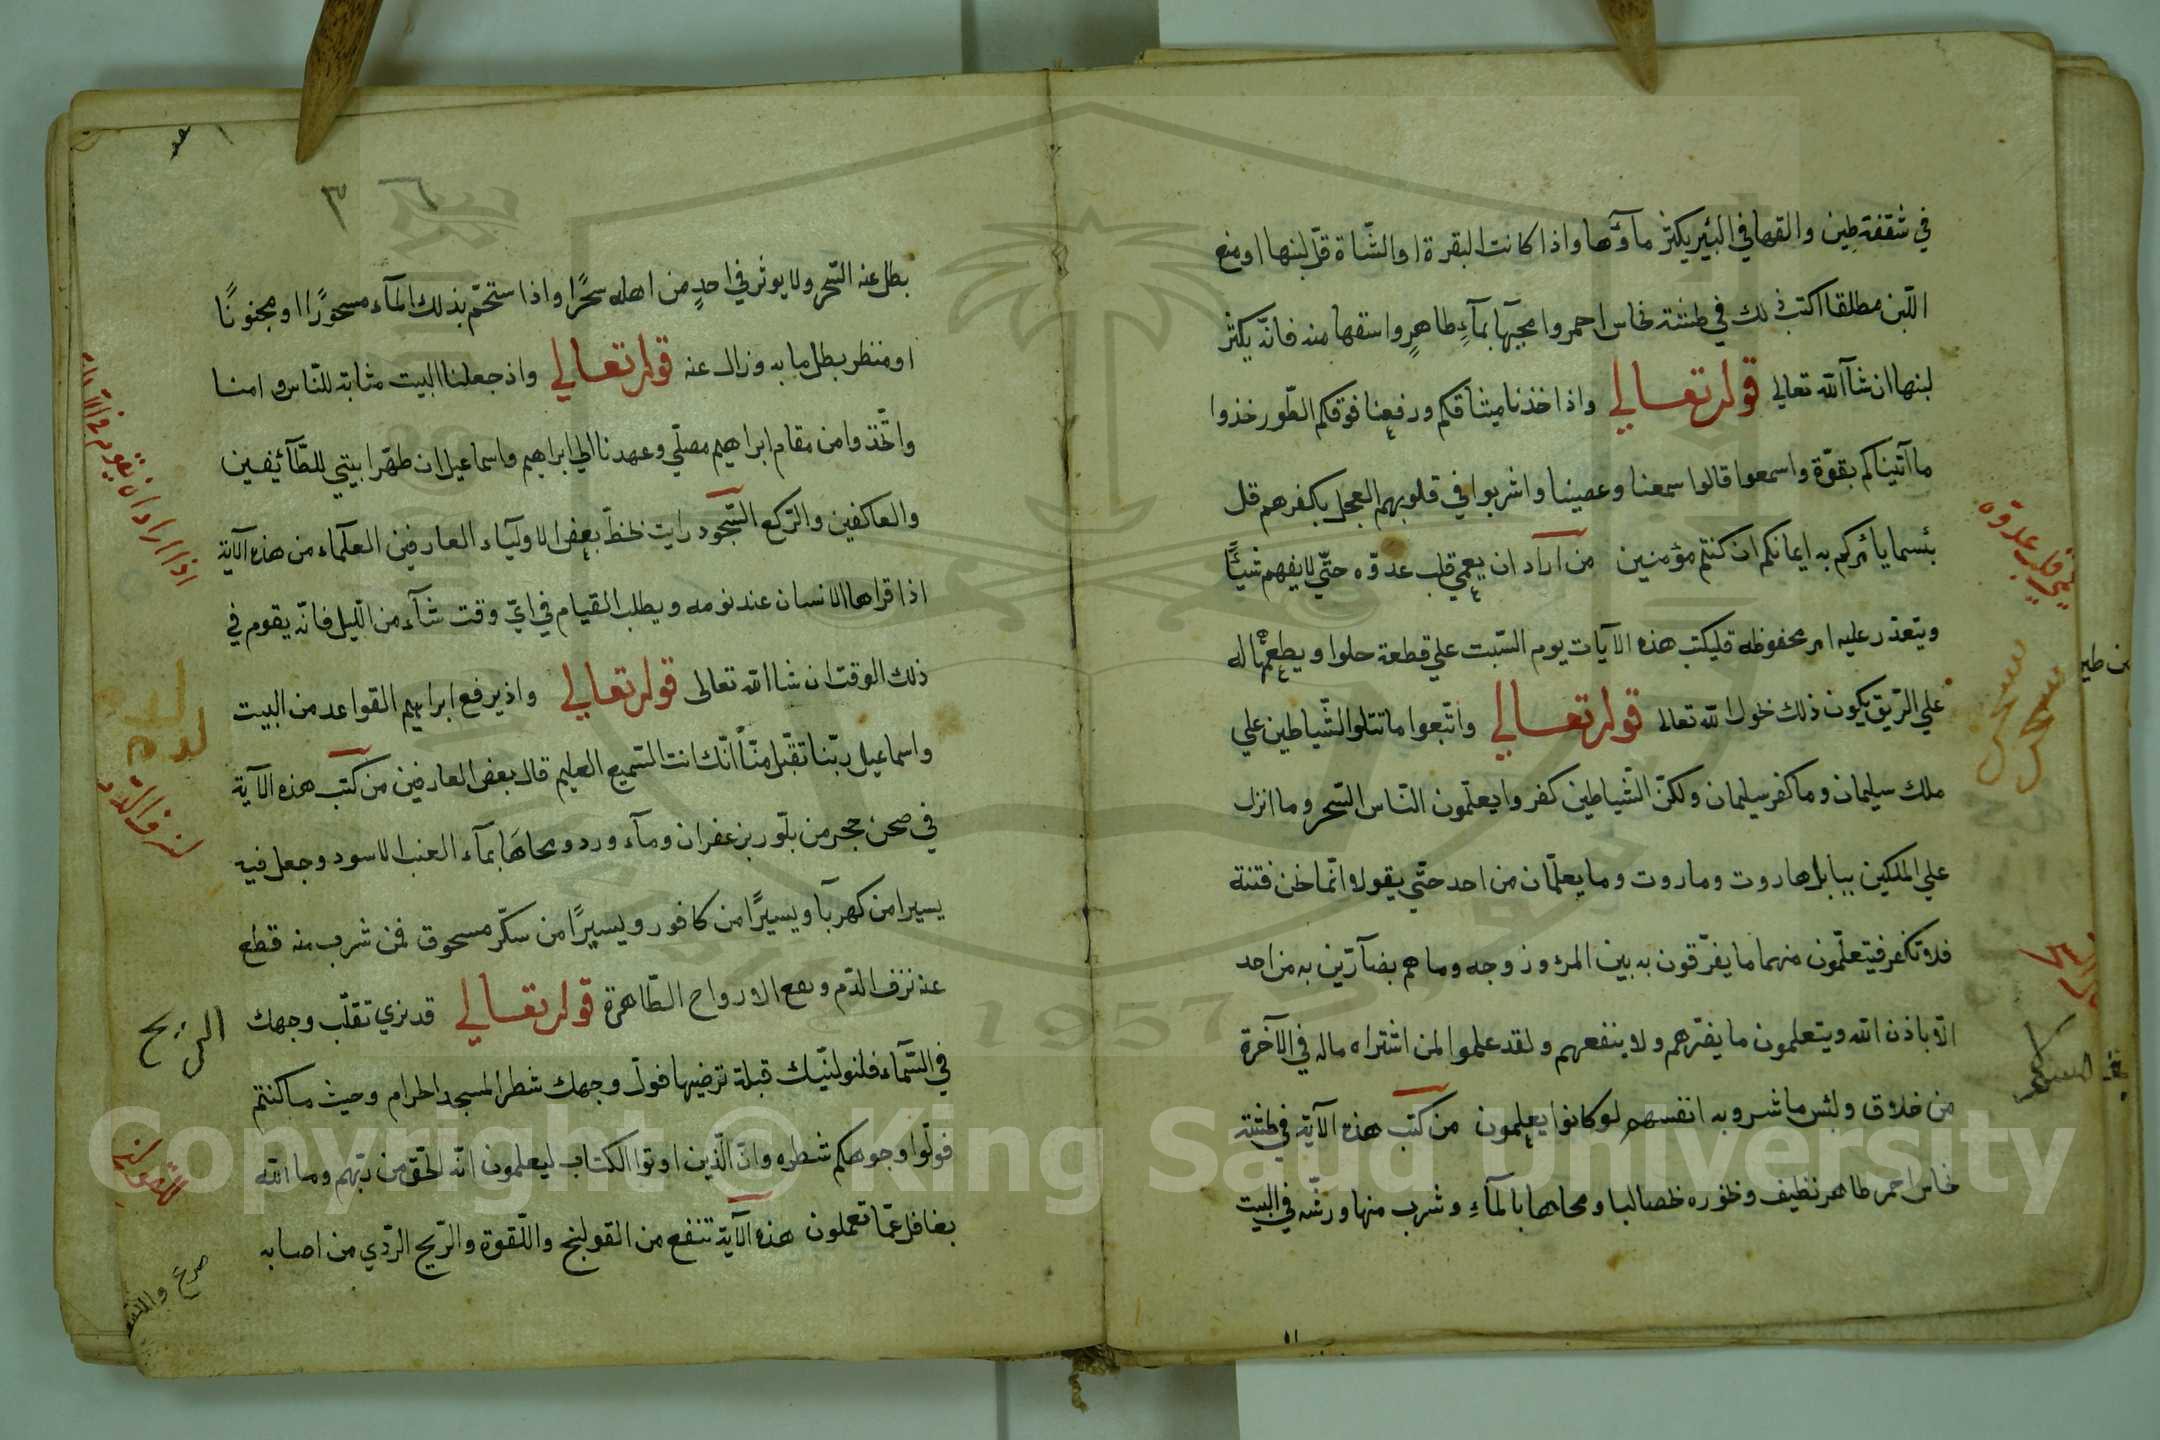 في شقفة طين والقها في البئر يكثر ماؤها واذا كانت البقرة او الشّاة قلّ لبنها او منع
اللّبن مطلقا اكتب ذلك في طشتة نحاس احمر وامحها بمآءٍ طاهرٍ واسقها منه فانّه يكثر
لبنها ان شآ الله تعالي قوله تعالي واذ اخذنا ميثاقكم ورفعنا فوقكم الطّور خذوا
ما آتيناكم بقوّة واسمعوا قالوا سمعنا وعصينا واشربوا في قلوبهم العجل بكفرهم قل
بئسما يامركم به ايمانكم ان كنتم مؤمنين من آراد ان يعمي قلب عدوّه حتّي لا يفهم شيئًا
ويتعذر عليه امر محفوظه فليكتب هذه الآيات يوم السّبت علي قطعة حلوا ويطعمها له
علي الرّيق يكون ذلك بحول الله تعالى قوله تعالي واتّبعوا ما تتلوا الشّياطين علي
ملك سليمان وما كفر سليمان ولكنّ الشّياطين كفروا يعلّمون النّاس السّحر وما انزل
علي الملكين ببابل هاروت وماروت وما يعلّمان من احد حتّي يقولا انّما نحن فتنة
فلا تكفر فيتعلّمون منهما ما يفرّقون به بين المرء وزوجه وما هم بضآرّين به من احد
الّا باذن الله ويتعلمون ما يضرّهم ولا ينفعهم ولقد علموا لمن اشتراه ماله في الآخرة
من خلاق ولبئس ما شروبه انفسهم لو كانوا يعلمون من كتب هذه الآية في طشتة
نحاس احمر طاهر نظيف وبخوره حصالبا ومحاها بالمآءِ وشرب منها ورشّه في البيت
يعمي قلب عدوه
بطل عنه السّحر ولا يوثر في احدٍ من اهله سحرًا واذا ستحمّ بذلك المآء مسحورًا او مجنونًا
او منظر بطل ما به وزال عنه قوله تعالي واذ جعلنا البيت مثابة للنّاس وامنا
واتّخذوا من مقام ابراهيم مصلّي وعهدنا الي ابراهيم واسماعيل ان طهّرا بيتي للطّآئفين
والعاكفين والرّكع السّجود رايت بخطّ بعض الاوليآء العارفين العلمآء من هذه الآية
اذا قراها الانسان عند نومه ويطلب القيام في ايّ وقت شآء من اللّيل فانّه يقوم في
ذلك الوقت ان شا الله تعالى قوله تعالي واذ يرفع ابراهيم القواعد من البيت
واسماعيل ربّنا تقبّل منّا انّك انت السّميع العليم قال بعض العارفين من كتب هذه الآية
في صحن حجر من بلّور بزعفران ومآء ورد ومحاها بمآء العنب الاسود وجعل فيه
يسيرا من كهربآ ويسيرًا من كافور ويسيرًا من سكّر مسحوق فمن شرب منه قطع
عنه نزف الدّم ومع الارواح الطّاهرة قوله تعالي قد نري تقلّب وجهك
في السّمآء فلنولّينّك قبلة ترضيها فولّ وجهك شطر المسجد الحرام وحيث ما كنتم
فولّوا وجوهكم شطره وانّ الّذين اوتوا الكتاب ليعلمون انّه الحقّ من ربّهم وما الله
بغافل عمّا تعملون هذه الآية تنفع من القولنج واللّقوة والرّيح الرّدّي من اصابه
اذا اراد ان يقوم
لنزف الدّم
الريح
Copyright © King Saud University
1957